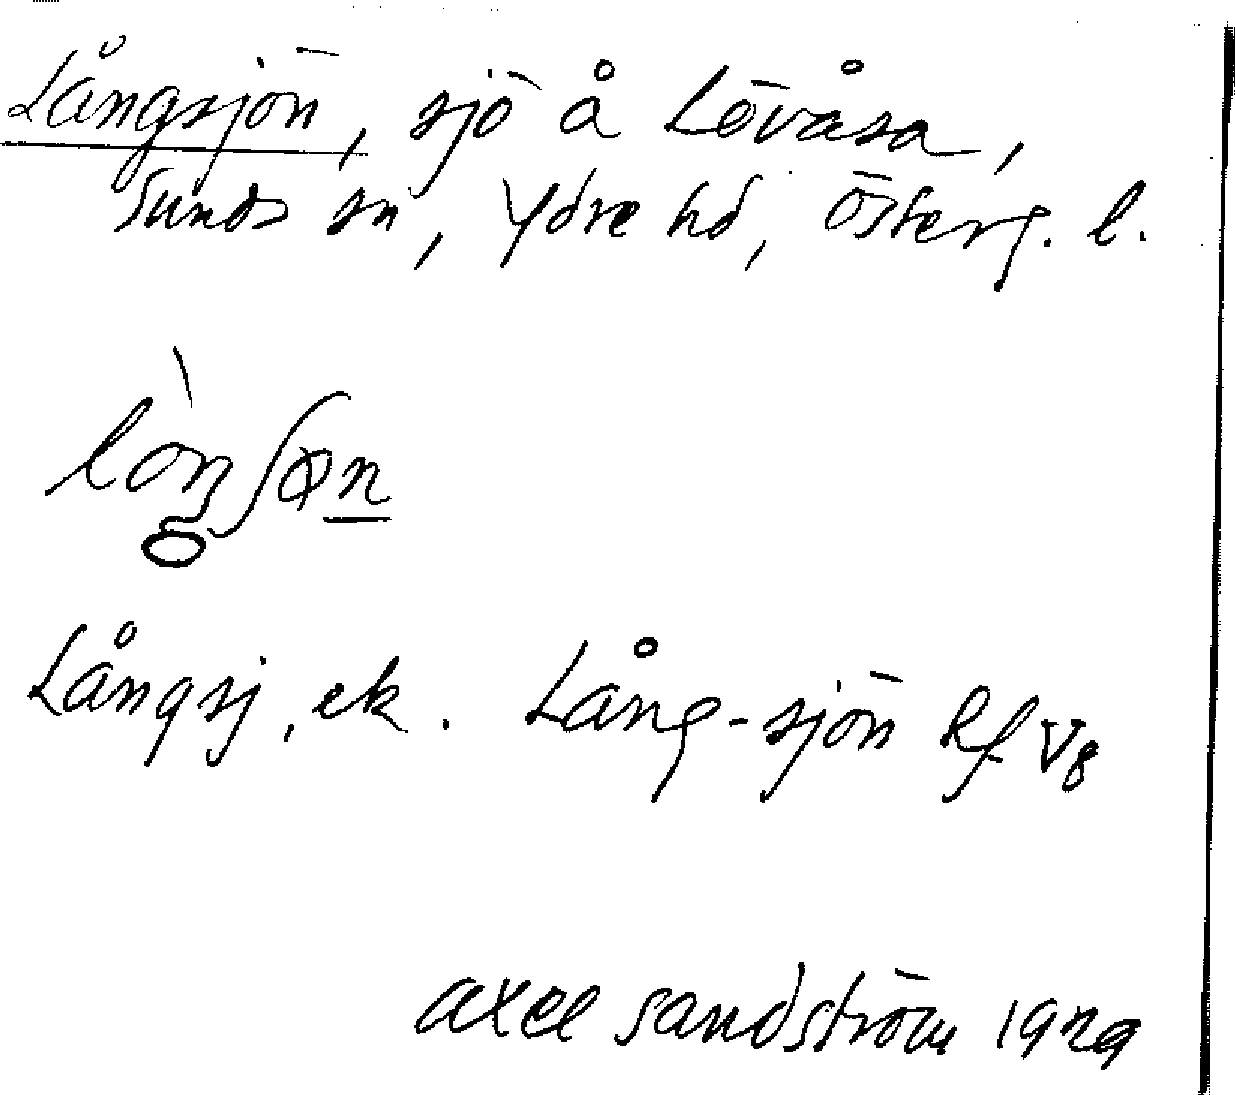 Långsjön, sjö å Lövåsa,
Sunds sn, Ydre hd, Österg. l.
Långsj, ek. Lång-sjön Rf V8
Axel Sandström 1929